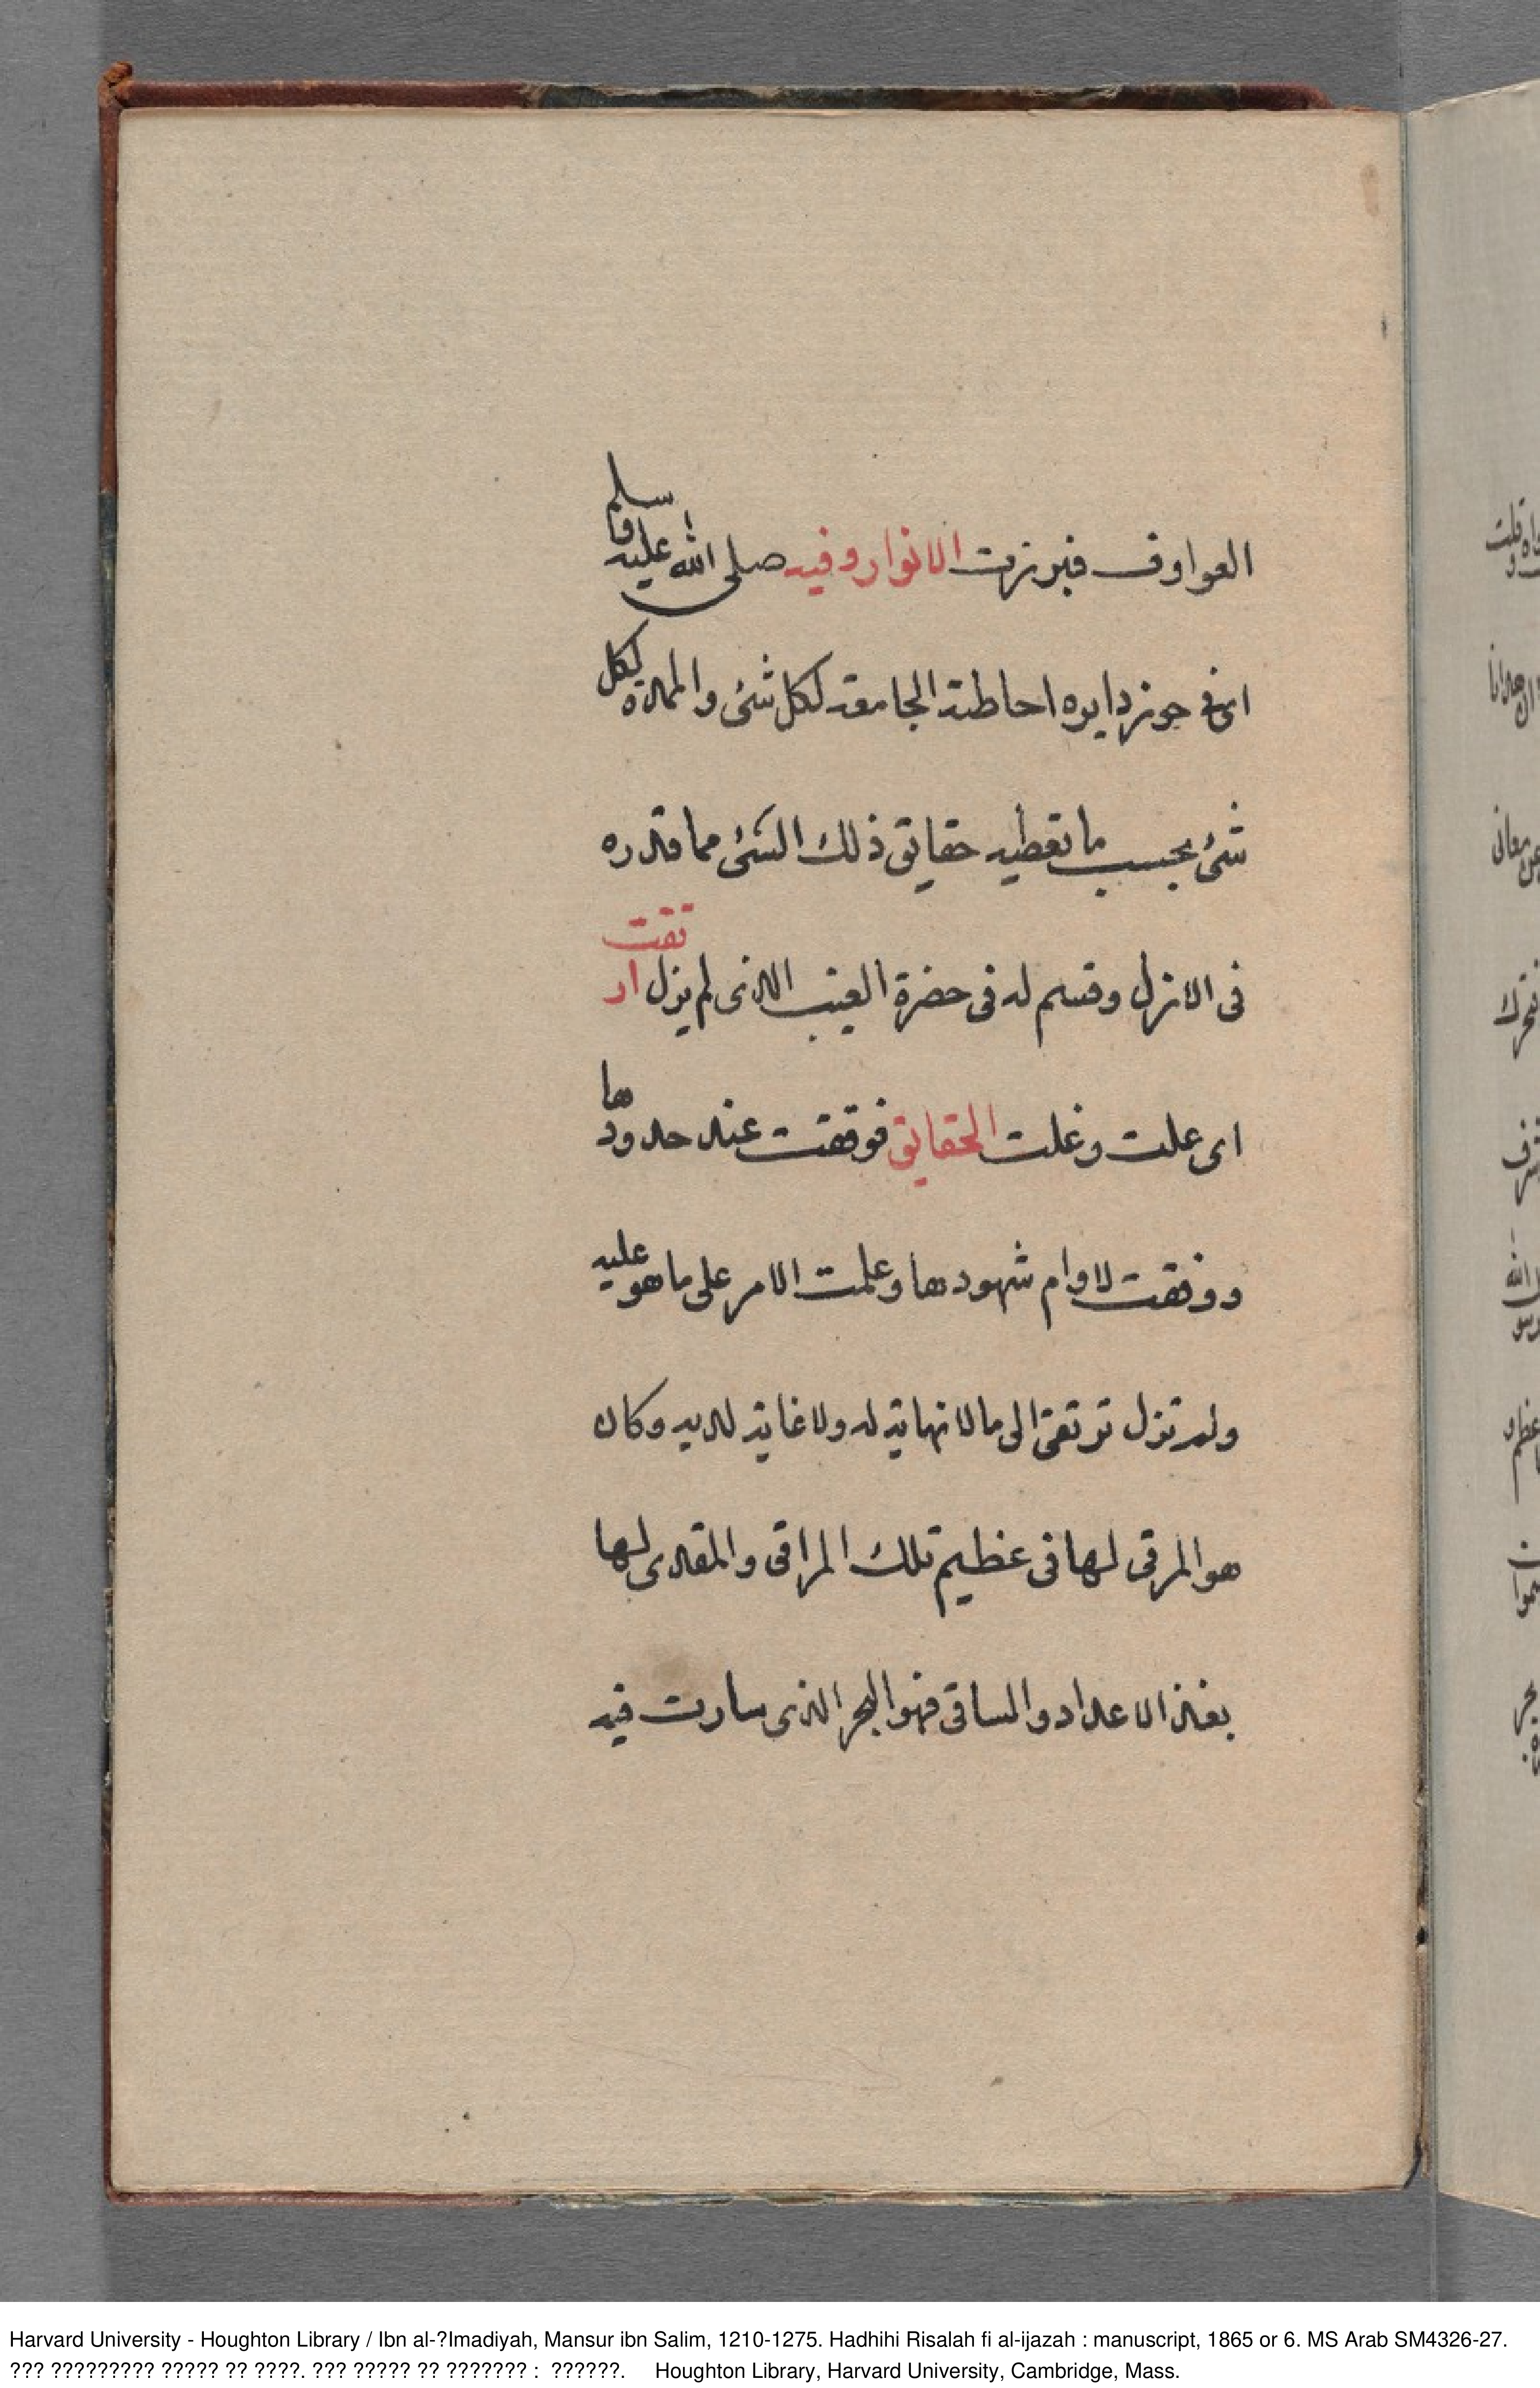 العوارف فبرزت الانوار وفيه صلى الله عليه وسلم
اى فى حوز دايره احاطته الجامعة لكل شئ والممدة لكل
شئ بحسب ما تعطيه حقايق ذلك الشئ مما قدره
فى الازل وقسم له فى حضرة الغيب الذى لم يزل ارتقت
اى علت وغلت الحقايق فوقفت عند حدودها
ووفقت لدوام شهودها وعلمت الامر على ما هو عليه
ولم تزل ترتقى الى ما لا نهاية له ولا غاية لديه وكان
هو المرقى لها فى عظيم تلك المراقى والمغدى لها
بغذا الاعداد والساقى فهو البحر الذى سارت فيه
Harvard University - Houghton Library / Ibn al-?Imadiyah, Mansur ibn Salim, 1210-1275. Hadhihi Risalah fi al-ijazah : manuscript, 1865 or 6. MS Arab SM4326-27.
??? ????????? ????? ?? ????. ??? ????? ?? ??????? : ??????. Houghton Library, Harvard University, Cambridge, Mass.